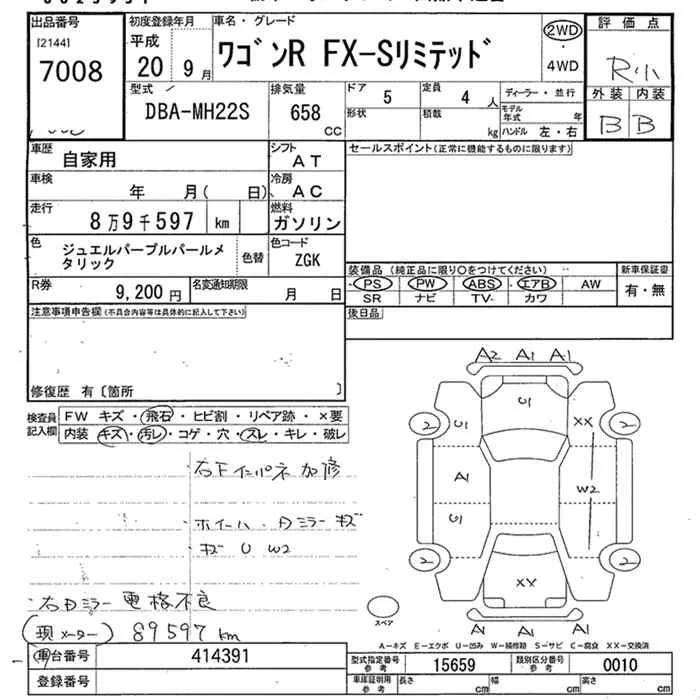 出品番号
[2144]
7008
初度登録年月
平成
20 9月
車名・グレード
ワゴンR FX-Sリミテッド
2WD
・
4WD
評価点
R小
外装 内装
B B
型式
DBA-MH22S
排気量
658
CC
ドア
5
定員
4 人
形状
積載
kg
ディーラー・並行
モデル
年式 年
ハンドル 左・右
車歴
自家用
シフト
AT
車検
年 月( 日)
冷房
AC
走行
8万9千597 km
燃料
ガソリン
色
ジュエルパープルパールメ
タリック
色替
色コード
ZGK
R券
9,200円
名変通知期限
月 日
セールスポイント(正常に機能するものに限ります)
装備品 (純正品に限り○をつけてください)
PS PW ABS エアB AW
SR ナビ TV カワ
新車保証書
有・無
後日品
注意事項申告欄(不具合内容等は具体的に記入して下さい)
修復歴 有〔箇所 〕
検査員
記入欄
FW キズ・飛石・ヒビ割・リペア跡・×要
内装 キズ・汚レ・コゲ・穴・スレ・キレ・破レ
右Fインパネ加修
ホイール、Dミラーキズ
キズ U W2
右Dミラー電格不良
(現メーター) 89597km
車台番号
414391
登録番号
A2 A1 A1
U1
2 U1 XX 2
A1
W2
U1
2 2
XX
A1 A1 A1
スペア
A-キズ E-エクボ U-凹み W-補修跡 S-サビ C-腐食 XX-交換済
型式指定番号
参考
15659
類別区分番号
参考
0010
車庫証明用
参考
長さ cm 幅 cm 高さ cm